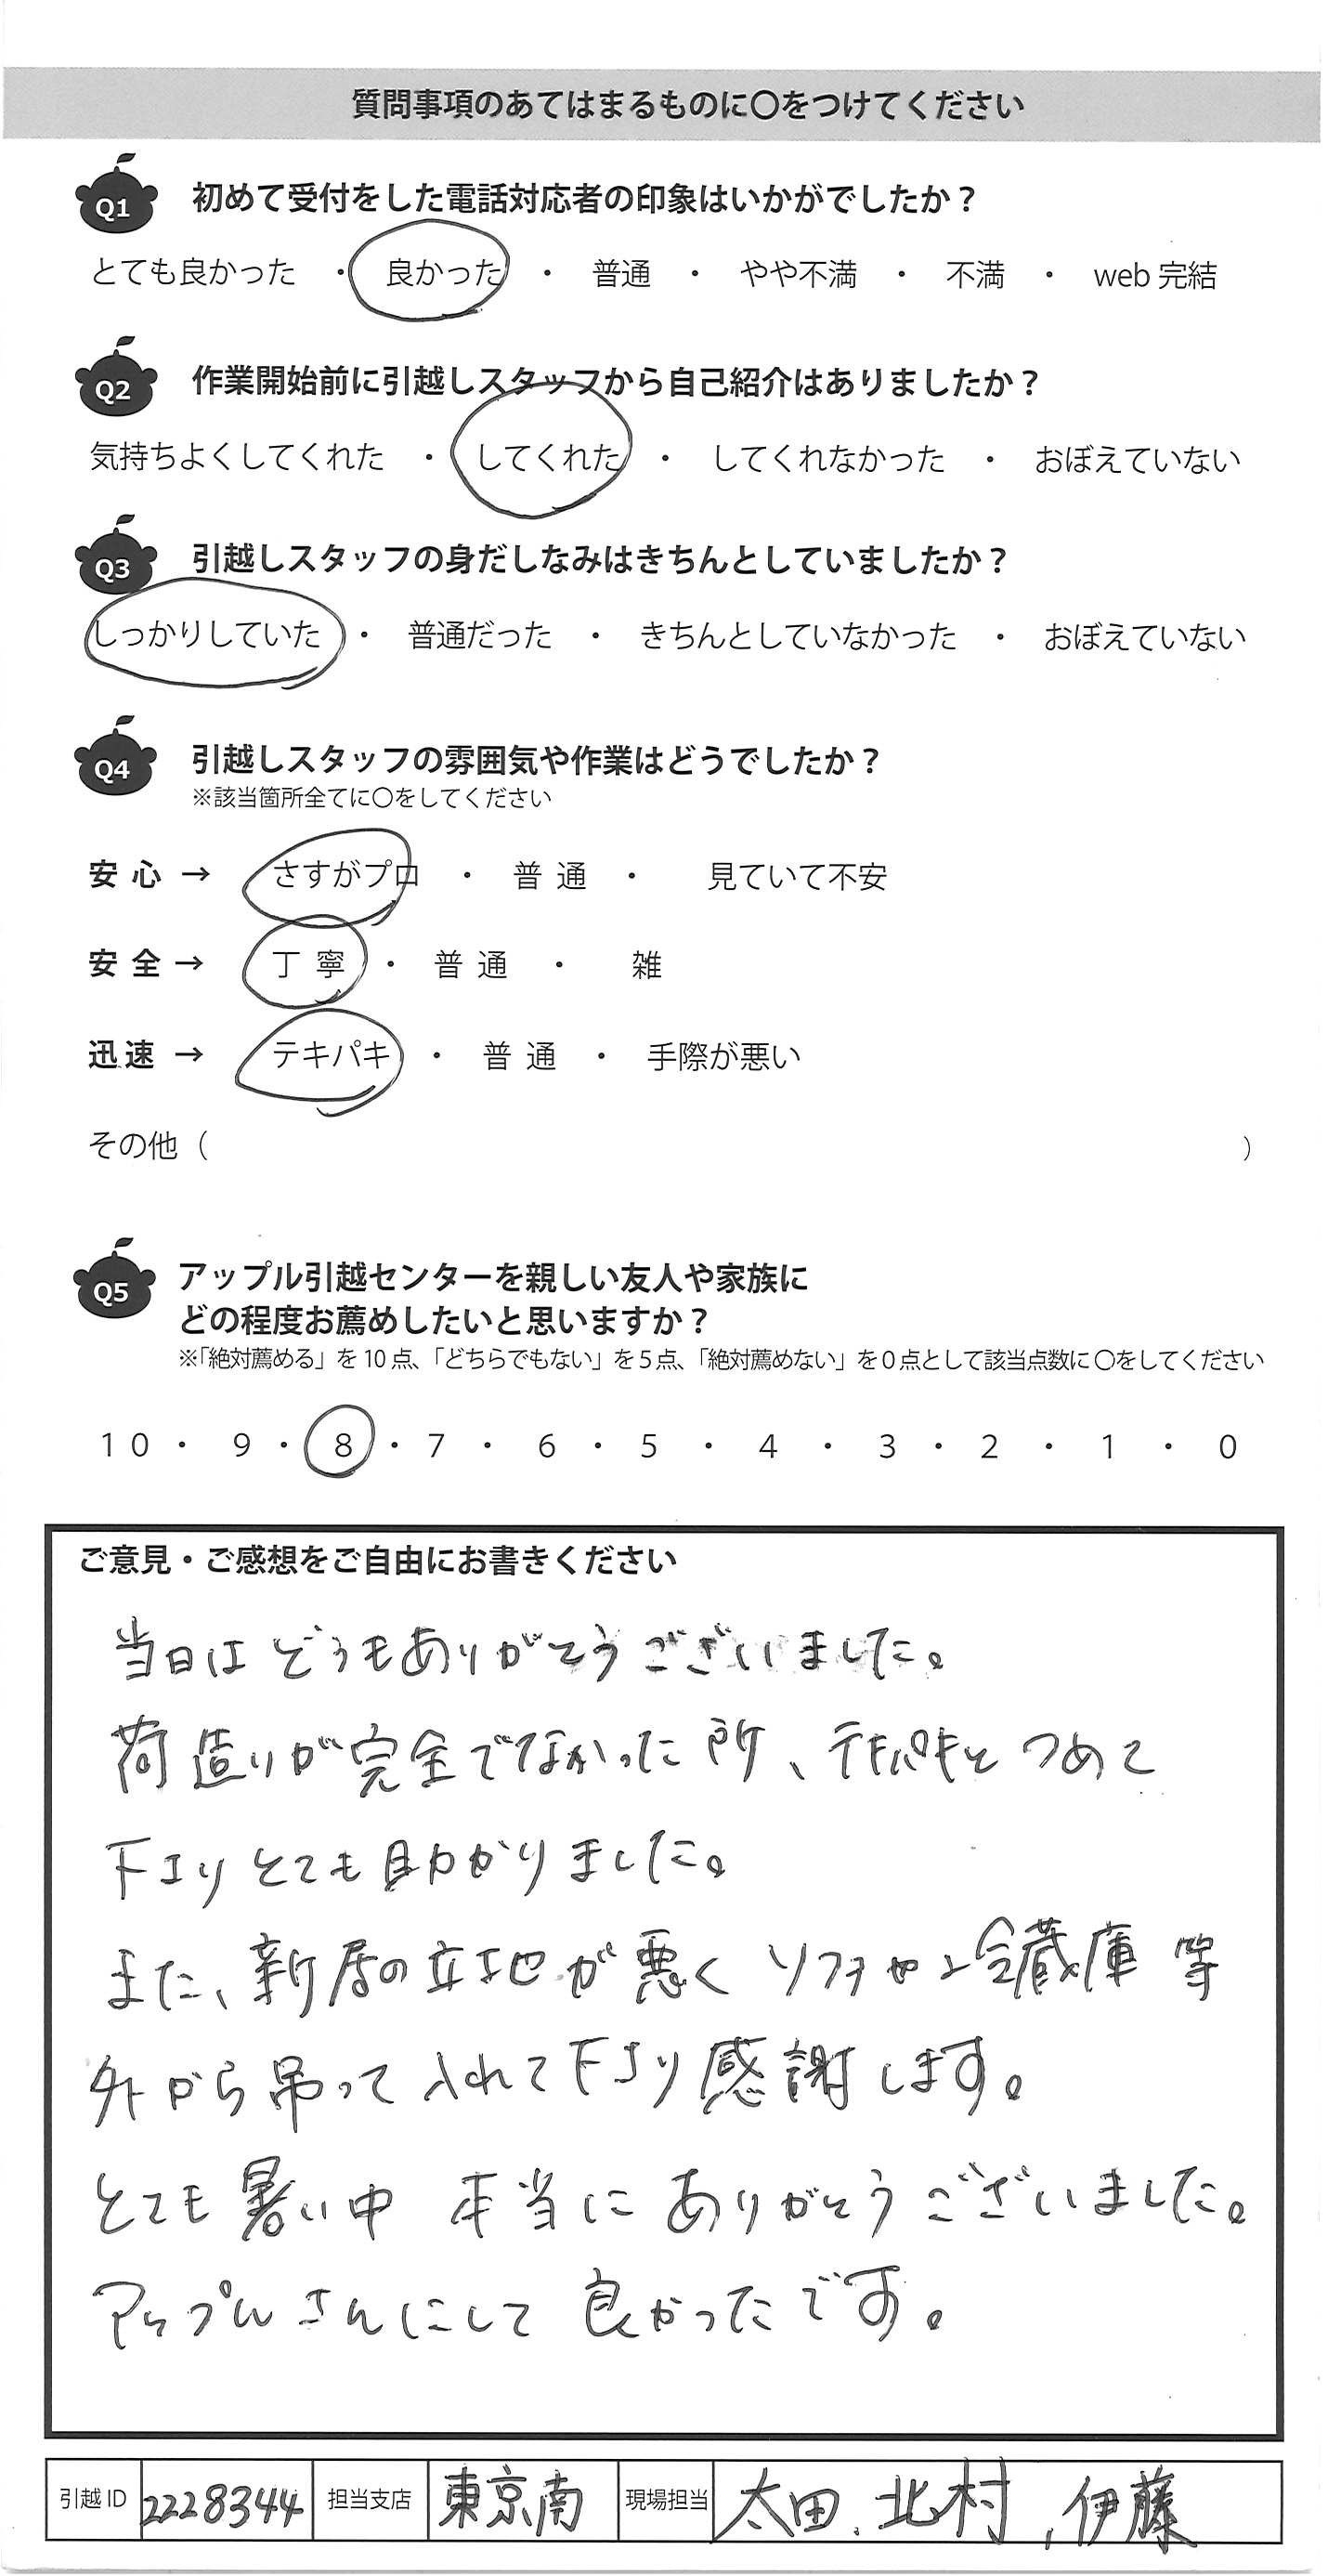 質問事項のあてはまるものに〇をつけてください
Q1 初めて受付をした電話対応者の印象はいかがでしたか？
とても良かった ・ 良かった ・ 普通 ・ やや不満 ・ 不満 ・ web 完結
Q2 作業開始前に引越しスタッフから自己紹介はありましたか？
気持ちよくしてくれた ・ してくれた ・ してくれなかった ・ おぼえていない
Q3 引越しスタッフの身だしなみはきちんとしていましたか？
しっかりしていた ・ 普通だった ・ きちんとしていなかった ・ おぼえていない
Q4 引越しスタッフの雰囲気や作業はどうでしたか？
※該当箇所全てに〇をしてください
安心 → さすがプロ ・ 普通 ・ 見ていて不安
安全 → 丁寧 ・ 普通 ・ 雑
迅速 → テキパキ ・ 普通 ・ 手際が悪い
その他（ ）
Q5 アップル引越センターを親しい友人や家族に
どの程度お薦めしたいと思いますか？
※「絶対薦める」を10点、「どちらでもない」を5点、「絶対薦めない」を0点として該当点数に〇をしてください
10 ・ 9 ・ 8 ・ 7 ・ 6 ・ 5 ・ 4 ・ 3 ・ 2 ・ 1 ・ 0
ご意見・ご感想をご自由にお書きください
当日はどうもありがとうございました。
荷造りが完全でなかった所、テキパキとつめて
下さりとても助かりました。
また、新居の立地が悪くソファや冷蔵庫等
外から吊って入れて下さり感謝します。
とても暑い中 本当にありがとうございました。
アップルさんにして良かったです。
引越ID 2228344 担当支店 東京南 現場担当 太田、北村、伊藤